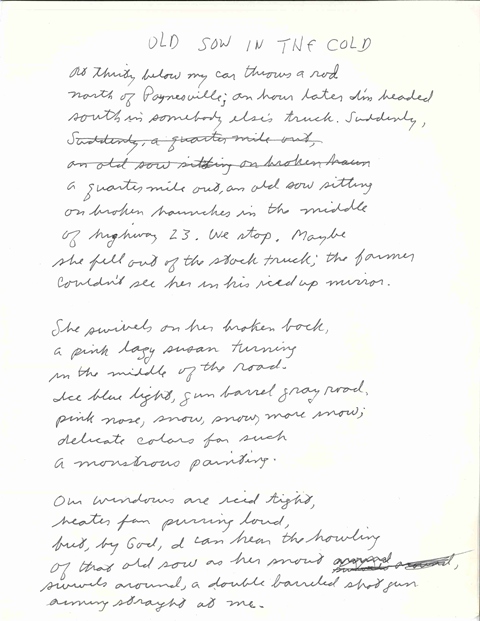 OLD SOW IN THE COLD
At thirty below my car throws a rod
north of Paynesville; an hour later I'm headed
south in somebody else's truck. Suddenly,
Suddenly, a quarter mile out,
an old sow sitting on broken haun
a quarter mile out, an old sow sitting
on broken haunches in the middle
of highway 23. We stop. Maybe
she fell out of the stock truck; the farmer
couldn't see her in his iced up mirror.
She swivels on her broken back,
a pink lazy susan turning
in the middle of the road.
Ice blue light, gun barrel gray road,
pink nose, snow, snow, more snow;
delicate colors for such
a monstrous painting.
Our windows are iced tight,
heater fan purring loud,
but, by God, I can hear the howling
of that old sow as her snout
swivels around, a double barreled shot gun
aiming straight at me.